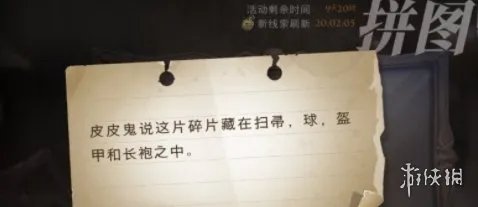 活动剩余时间 9天20时
新线索刷新 20:02:05
拼图
皮皮鬼说这片碎片藏在扫帚，球，盔
甲和长袍之中。
游侠网